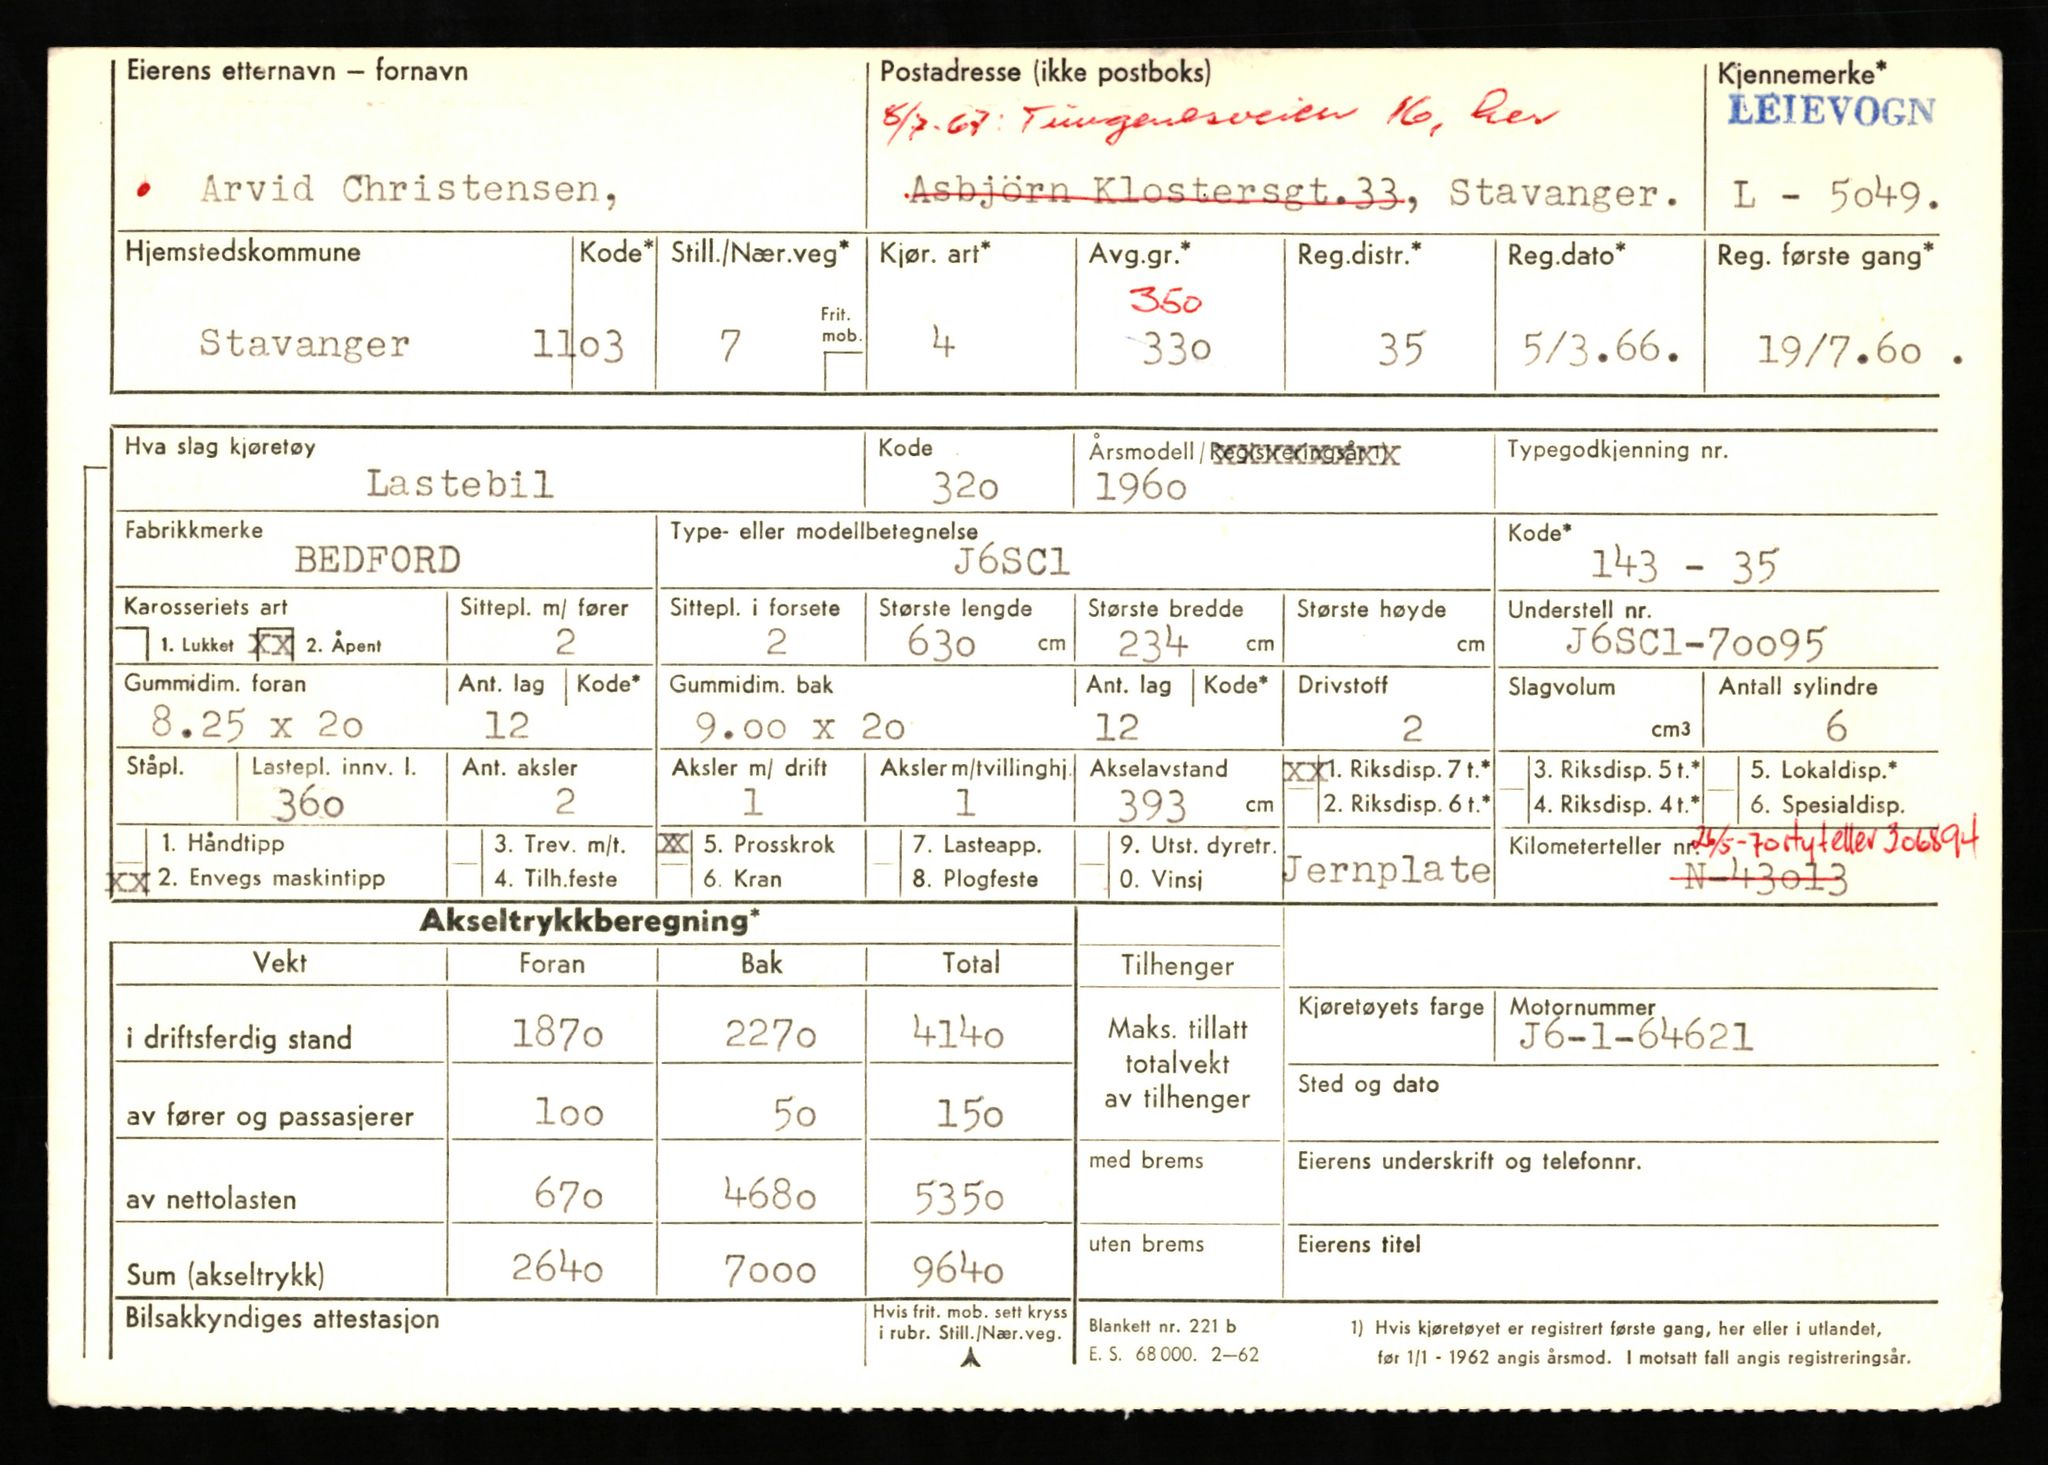 Eierens etternavn – fornavn Postadresse (ikke postboks) Kjennemerke*
8/7-67: Tungenesveien 16, her LEIEVOGN
Arvid Christensen, Asbjörn Klostersgt.33, Stavanger. L - 5049.
Hjemstedskommune Kode* Still./Nær.veg* Kjør. art* Avg.gr.* Reg.distr.* Reg.dato* Reg. første gang*
350
Frit. mob.
Stavanger 1103 7 4 330 35 5/3.66. 19/7.60 .
Hva slag kjøretøy Kode Årsmodell/Registreringsår 1) Typegodkjenning nr.
Lastebil 320 1960
Fabrikkmerke Type- eller modellbetegnelse Kode*
BEDFORD J6SC1 143 - 35
Karosseriets art Sittepl. m/ fører Sittepl. i forsete Største lengde Største bredde Største høyde Understell nr.
1. Lukket XX 2. Åpent 2 2 630 cm 234 cm cm J6SC1-70095
Gummidim. foran Ant. lag Kode* Gummidim. bak Ant. lag Kode* Drivstoff Slagvolum Antall sylindre
8.25 x 20 12 9.00 x 20 12 2 cm3 6
Ståpl. Lastepl. innv. l. Ant. aksler Aksler m/ drift Aksler m/tvillinghj. Akselavstand XX 1. Riksdisp. 7 t.* 3. Riksdisp. 5 t.* 5. Lokaldisp.*
360 2 1 1 393 cm 2. Riksdisp. 6 t.* 4. Riksdisp. 4 t.* 6. Spesialdisp.
1. Håndtipp 3. Trev. m/t. XX 5. Prosskrok 7. Lasteapp. 9. Utst. dyretr. Kilometerteller nr. 26/5-70 styteller 306894
XX 2. Envegs maskintipp 4. Tilh.feste 6. Kran 8. Plogfeste 0. Vinsj Jernplate N-43013
Akseltrykkberegning*
Vekt Foran Bak Total Tilhenger
Kjøretøyets farge Motornummer
i driftsferdig stand 1870 2270 4140 Maks. tillatt J6-1-64621
totalvekt
av tilhenger Sted og dato
av fører og passasjerer 100 50 150
med brems Eierens underskrift og telefonnr.
av nettolasten 670 4680 5350
uten brems Eierens titel
Sum (akseltrykk) 2640 7000 9640
Bilsakkyndiges attestasjon Hvis frit. mob. sett kryss Blankett nr. 221 b 1) Hvis kjøretøyet er registrert første gang, her eller i utlandet,
i rubr. Still./Nær.veg. E. S. 68 000. 2–62 før 1/1 - 1962 angis årsmod. I motsatt fall angis registreringsår.